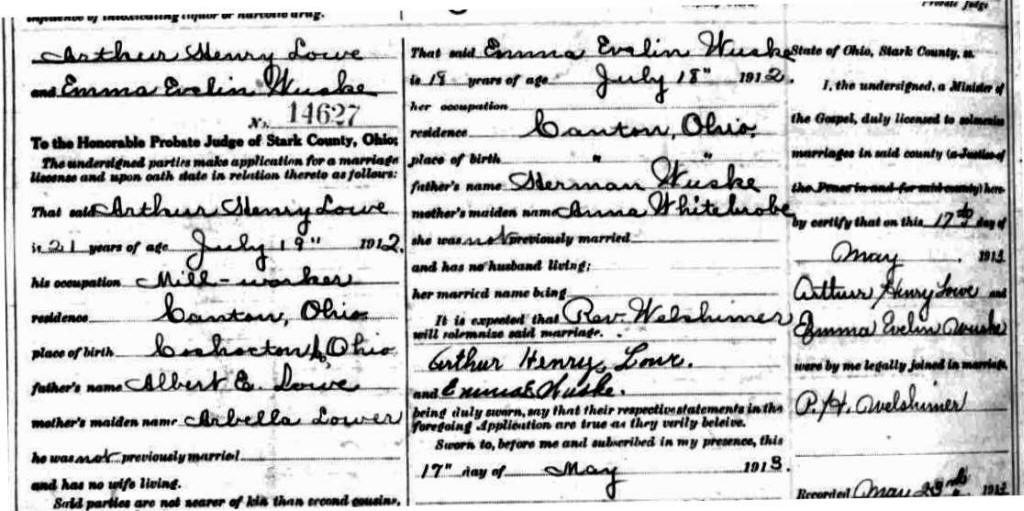 influence of intoxicating liquor or narcotic drug.
Arthur Henry Lowe
and Emma Evelin Wuske
No. 14627
To the Honorable Probate Judge of Stark County, Ohio;
The undersigned parties make application for a marriage
liscense and upon oath state in relation thereto as follows:
That said Arthur Henry Lowe
is 21 years of age July 19" 1912.
his occupation Mill-worker
residence Canton, Ohio
place of birth Coshocton, Ohio
father's name Albert E. Lowe
mother's maiden name Arbella Lower
he was not previously married
and has no wife living.
Said parties are not nearer of kin than second cousins,
That said Emma Evelin Wuske
is 18 years of age July 18" 1912.
her occupation
residence Canton, Ohio.
place of birth " "
father's name Herman Wuske
mother's maiden name Anna Whitebrobe
she was not previously married
and has no husband living;
her married name being
It is expected that Rev. Welshimer
will solemnize said marriage.
Arthur Henry Lowe.
and Emma E Wuske.
being duly sworn, say that their respective statements in the
foregoing Application are true as they verily beleive.
Sworn to, before me and subscribed in my presence, this
17" day of May 1913.
Probate Judge
State of Ohio, Stark County, ss.
I, the undersigned, a Minister of
the Gospel, duly licensed to solemnize
marriages in said county (a Justice of
the Peace in and for said county) here
by certify that on this 17th day of
May 1913
Arthur Henry Lowe and
Emma Evelin Wuske
were by me legally joined in marriage.
P. H. Welshimer
Recorded May 23rd 1913